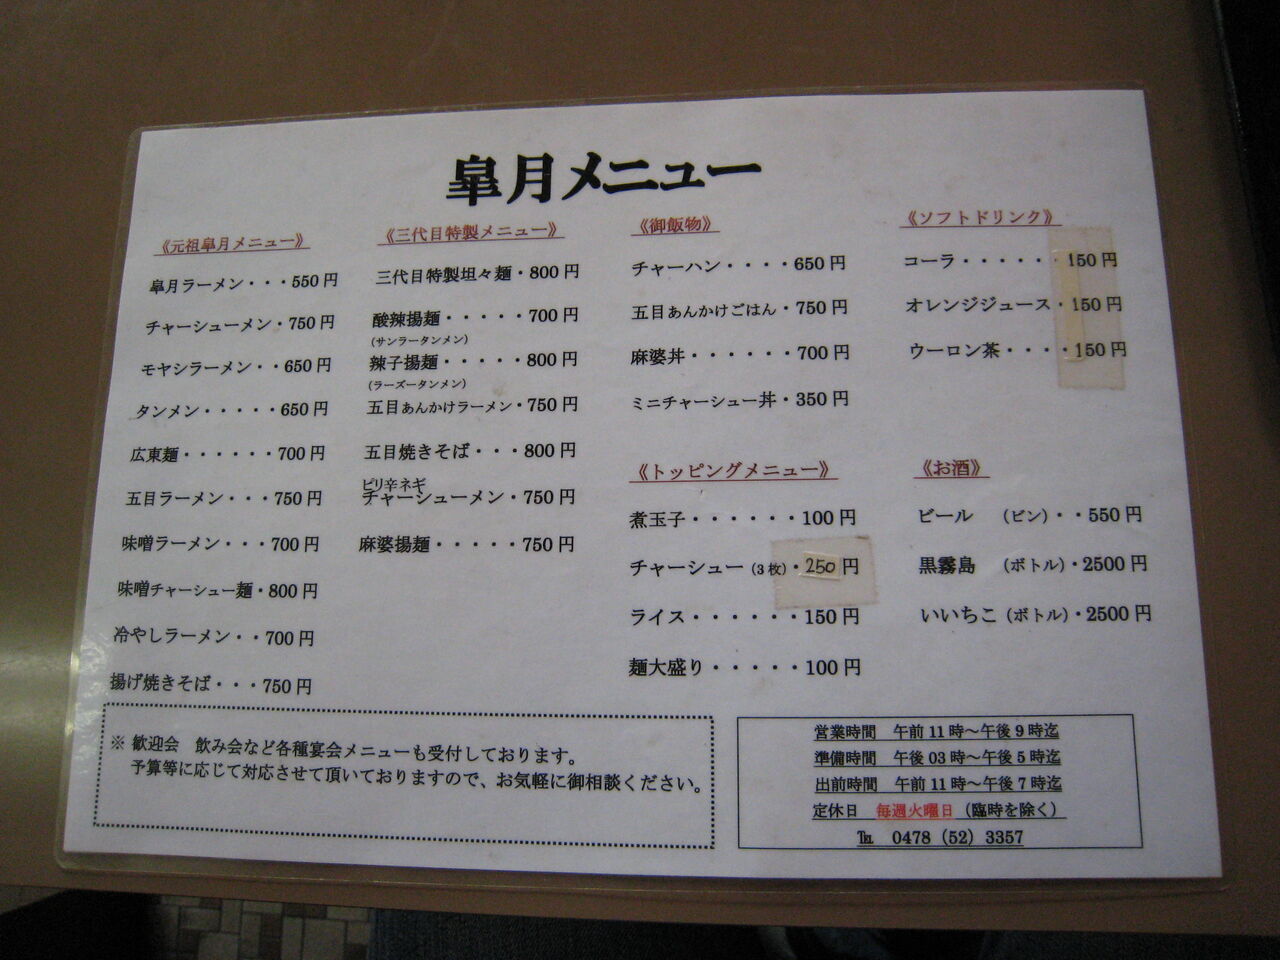 皐月メニュー
《元祖皐月メニュー》
皐月ラーメン・・・550円
チャーシューメン・750円
モヤシラーメン・・650円
タンメン・・・・・650円
広東麺・・・・・・700円
五目ラーメン・・・750円
味噌ラーメン・・・700円
味噌チャーシュー麺・800円
冷やしラーメン・・700円
揚げ焼きそば・・・750円
《三代目特製メニュー》
三代目特製坦々麺・800円
酸辣揚麺・・・・・700円
(サンラータンメン)
辣子揚麺・・・・・800円
(ラーズータンメン)
五目あんかけラーメン・750円
五目焼きそば・・・800円
ピリ辛ネギ
チャーシューメン・750円
麻婆揚麺・・・・・750円
《御飯物》
チャーハン・・・・650円
五目あんかけごはん・750円
麻婆丼・・・・・・700円
ミニチャーシュー丼・350円
《トッピングメニュー》
煮玉子・・・・・・100円
チャーシュー(3枚)・250円
ライス・・・・・・150円
麺大盛り・・・・・100円
《ソフトドリンク》
コーラ・・・・・・150円
オレンジジュース・150円
ウーロン茶・・・・150円
《お酒》
ビール (ビン)・・550円
黒霧島 (ボトル)・2500円
いいちこ(ボトル)・2500円
※ 歓迎会 飲み会など各種宴会メニューも受付しております。
予算等に応じて対応させて頂いておりますので、お気軽に御相談ください。
営業時間 午前11時～午後9時迄
準備時間 午後03時～午後5時迄
出前時間 午前11時～午後7時迄
定休日 毎週火曜日(臨時を除く)
℡ 0478(52)3357